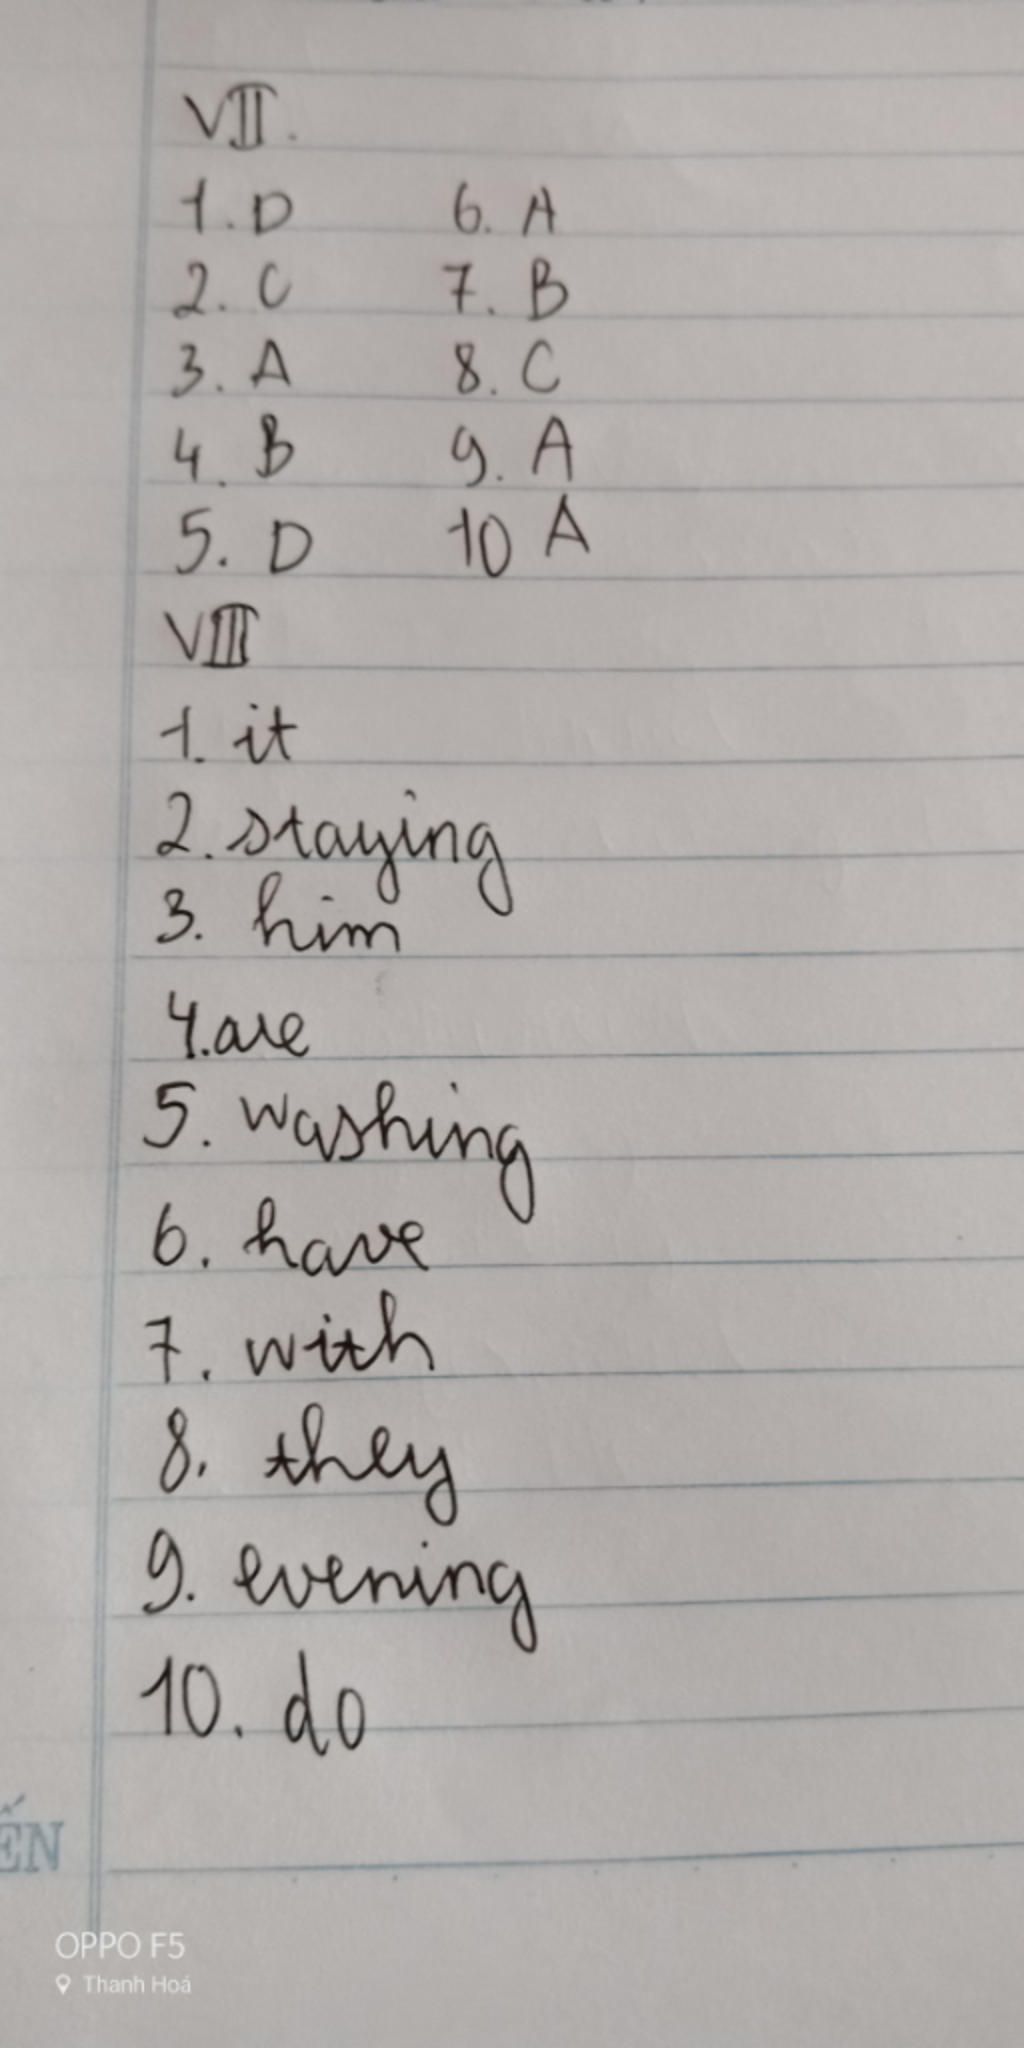 VII.
1. D 6. A
2. C 7. B
3. A 8. C
4. B 9. A
5. D 10 A
VIII
1. it
2. staying
3. him
4. are
5. washing
6. have
7. with
8. they
9. evening
10. do
ẾN
OPPO F5
Thanh Hoá